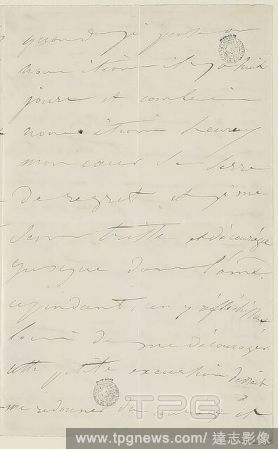 quand je pense
nous étions il y a huit
jours et combien
nous étions heureux
mon cœur se serre
de regret et je me
sens triste et découragée
jusque dans l'âme.
cependant, en y réfléchissant
loin de me décourager
cette petite excursion devrait
me redonner du et
TPG
www.tpgnews.com/達志影像